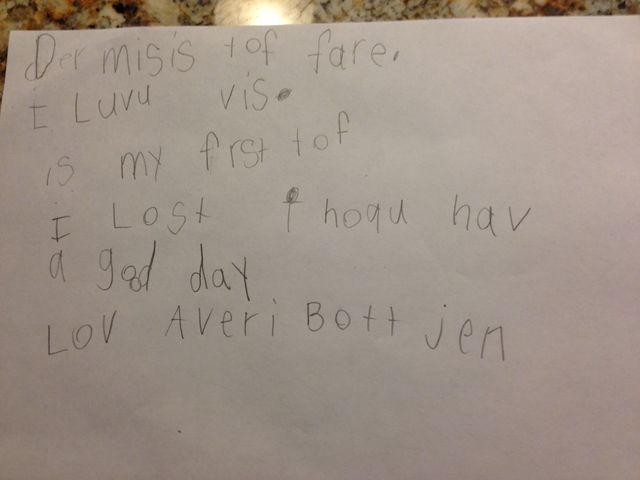 Der misis tof fare.
I Luvu vis.
is my frst tof
I Lost I hoqu hav
a god day
Lov Averi Bott jen